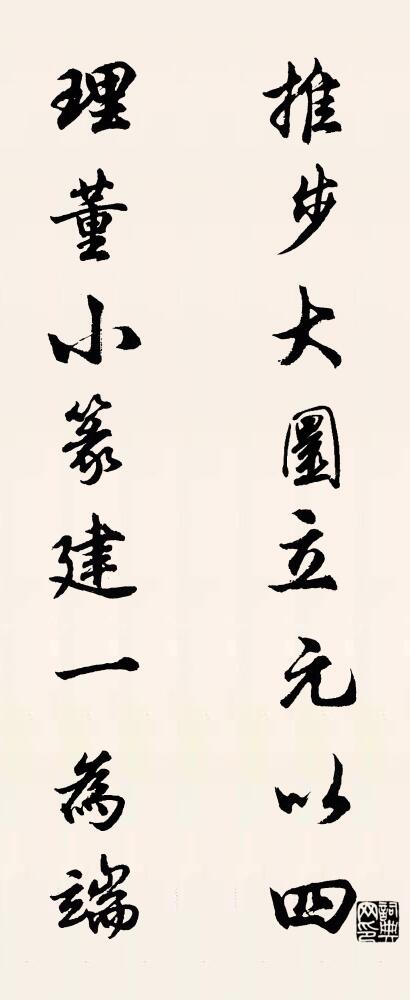 推步大圜立元以四
理董小篆建一為端